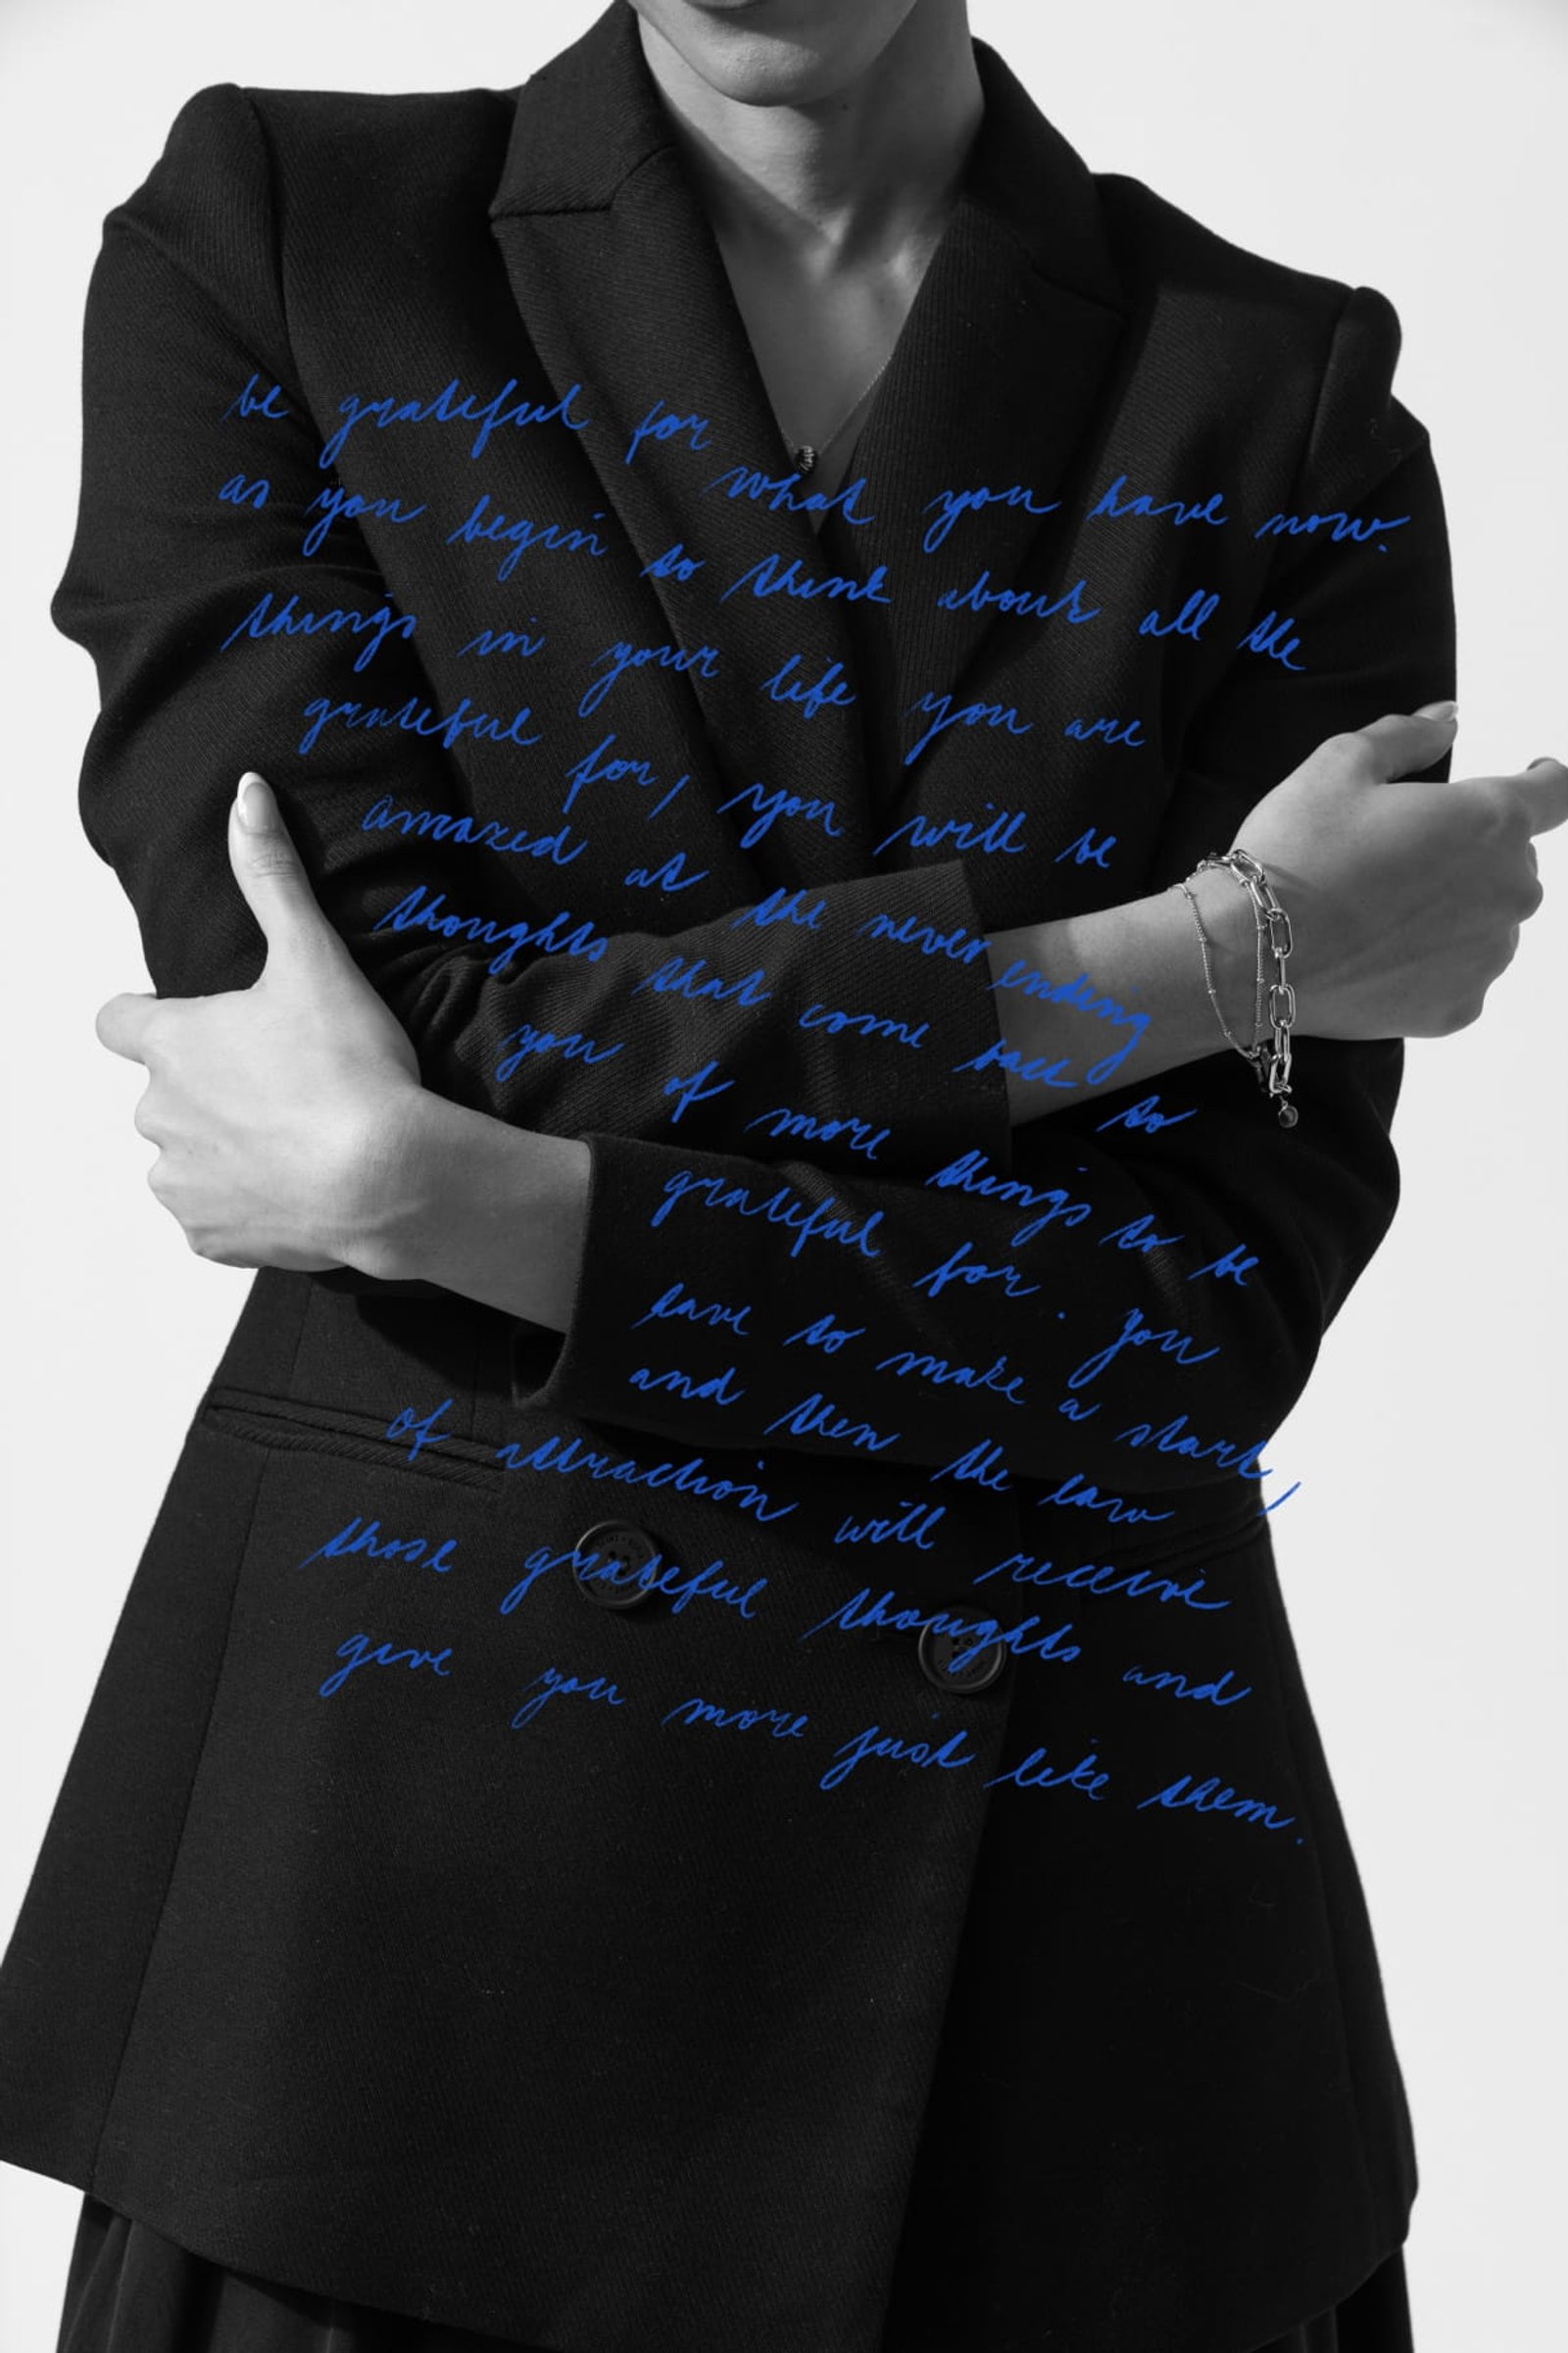 be grateful for what you have now.
as you begin to think about all the
things in your life you are
grateful for, you will be
amazed at the never ending
thoughts that come back to
you of more things to be
grateful for. You
have to make a start,
and then the law
of attraction will receive
those grateful thoughts and
give you more just like them.